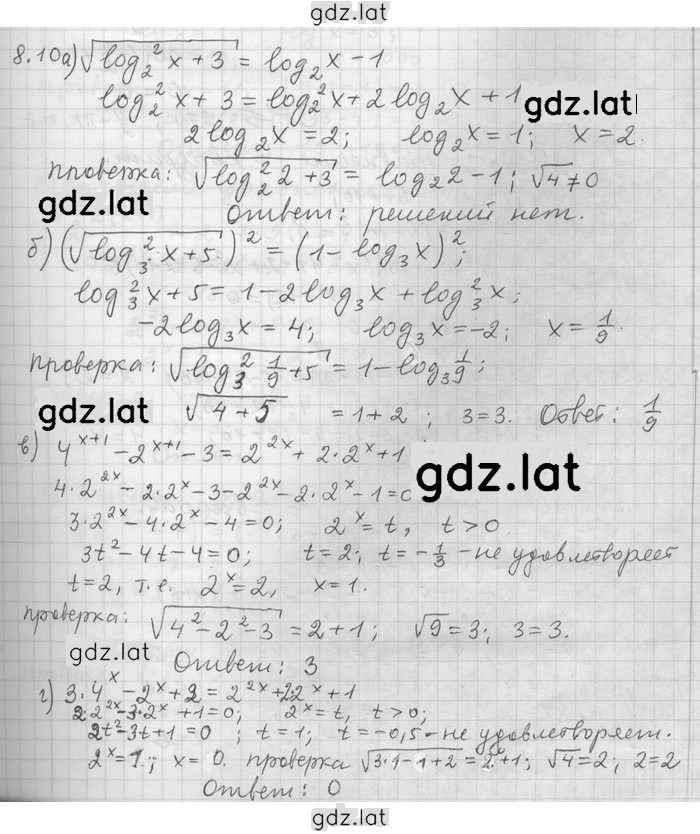 gdz.lat
8.10а) √(log₂² x + 3) = log₂ x − 1
log₂² x + 3 = log₂² x + 2 log₂ x + 1 gdz.lat
2 log₂ x = 2; log₂ x = 1; x = 2.
проверка: √(log₂² 2 + 3) = log₂ 2 − 1; √4 ≠ 0
gdz.lat Ответ: решений нет.
б) (√(log₃² x + 5))² = (1 − log₃ x)²;
log₃² x + 5 = 1 − 2 log₃ x + log₃² x;
−2 log₃ x = 4; log₃ x = −2; x = 1/9.
проверка: √(log₃² 1/9 + 5) = 1 − log₃ 1/9;
gdz.lat √(4 + 5) = 1 + 2; 3 = 3. Ответ: 1/9
в) 4^(x+1) − 2^(x+1) − 3 = 2^(2x) + 2·2^x + 1
4·2^(2x) − 2·2^x − 3 − 2^(2x) − 2·2^x − 1 = 0 gdz.lat
3·2^(2x) − 4·2^x − 4 = 0; 2^x = t, t > 0
3t² − 4t − 4 = 0; t = 2; t = −1/3 − не удовлетворяет
t = 2, т.е. 2^x = 2, x = 1.
проверка: √(4² − 2² − 3) = 2 + 1; √9 = 3; 3 = 3.
gdz.lat Ответ: 3
г) 3·4^x − 2^x + 2 = 2^(2x) + 2·2^x + 1
2·2^(2x) − 3·2^x + 1 = 0; 2^x = t, t > 0;
2t² − 3t + 1 = 0; t = 1; t = −0,5 − не удовлетворяет.
2^x = 1; x = 0. проверка √(3·1 − 1 + 2) = 2⁰ + 1; √4 = 2; 2 = 2
Ответ: 0
gdz.lat